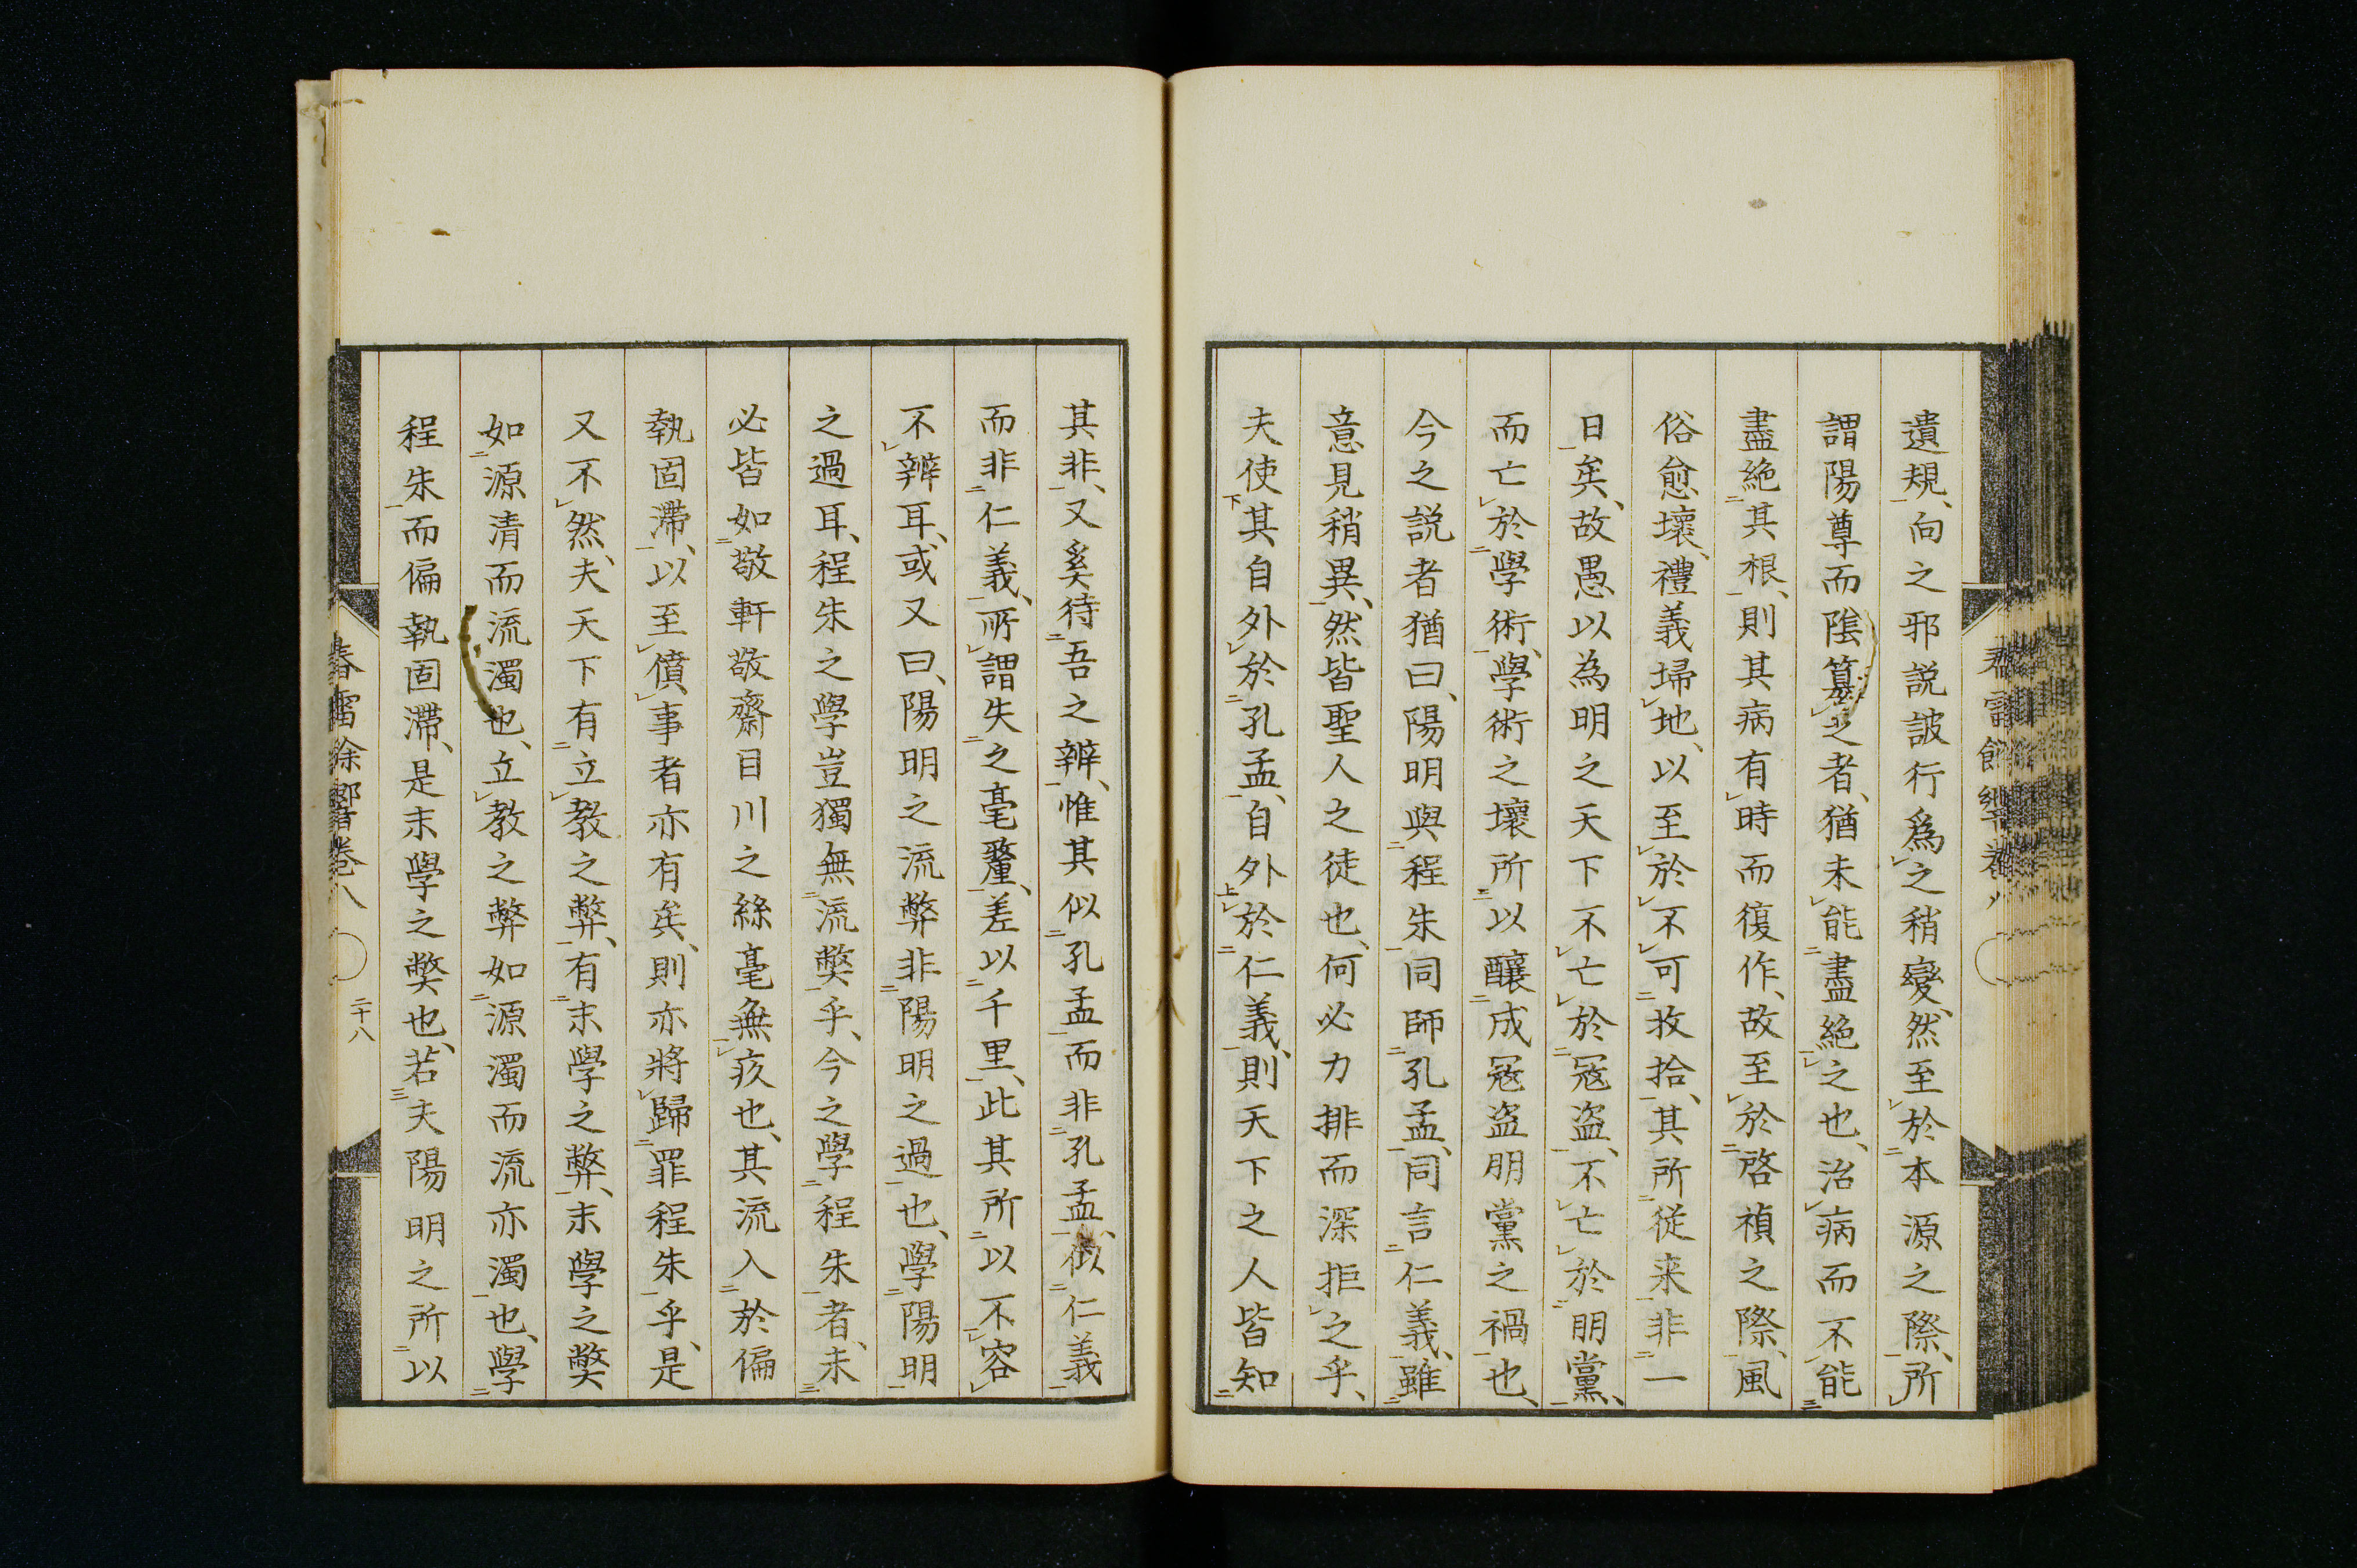 遺規、向之邪説詖行爲之稍變、然至於本源之際、所
謂陽尊而陰簒之者、猶未能盡絶之也、治病而不能
盡絶其根、則其病有時而復作、故至於啓禎之際、風
俗愈壞、禮義掃地、以至於不可收拾、其所從来非一
日矣、故愚以為明之天下不亡於寇盗、不亡於朋黨、
而亡於學術、學術之壞所以釀成寇盗朋黨之禍也、
今之説者猶曰、陽明與程朱同師孔孟、同言仁義、雖
意見稍異、然皆聖人之徒也、何必力排而深拒之乎、
夫使其自外於孔孟、自外於仁義、則天下之人皆知
其非、又奚待吾之辨、惟其似孔孟而非孔孟、似仁義
而非仁義、所謂失之毫釐、差以千里、此其所以不容
不辨耳、或又曰、陽明之流弊非陽明之過也、學陽明
之過耳、程朱之學豈獨無流弊乎、今之學程朱者、未
必皆如敬軒敬齋月川之絲毫無疚也、其流入於偏
執固滯、以至僨事者亦有矣、則亦將歸罪程朱乎、是
又不然、夫天下有立教之弊、有末學之弊、末學之弊
如源清而流濁也、立教之弊如源濁而流亦濁也、學
程朱而偏執固滯、是末學之弊也、若夫陽明之所以
春雷餘響卷八
二十八